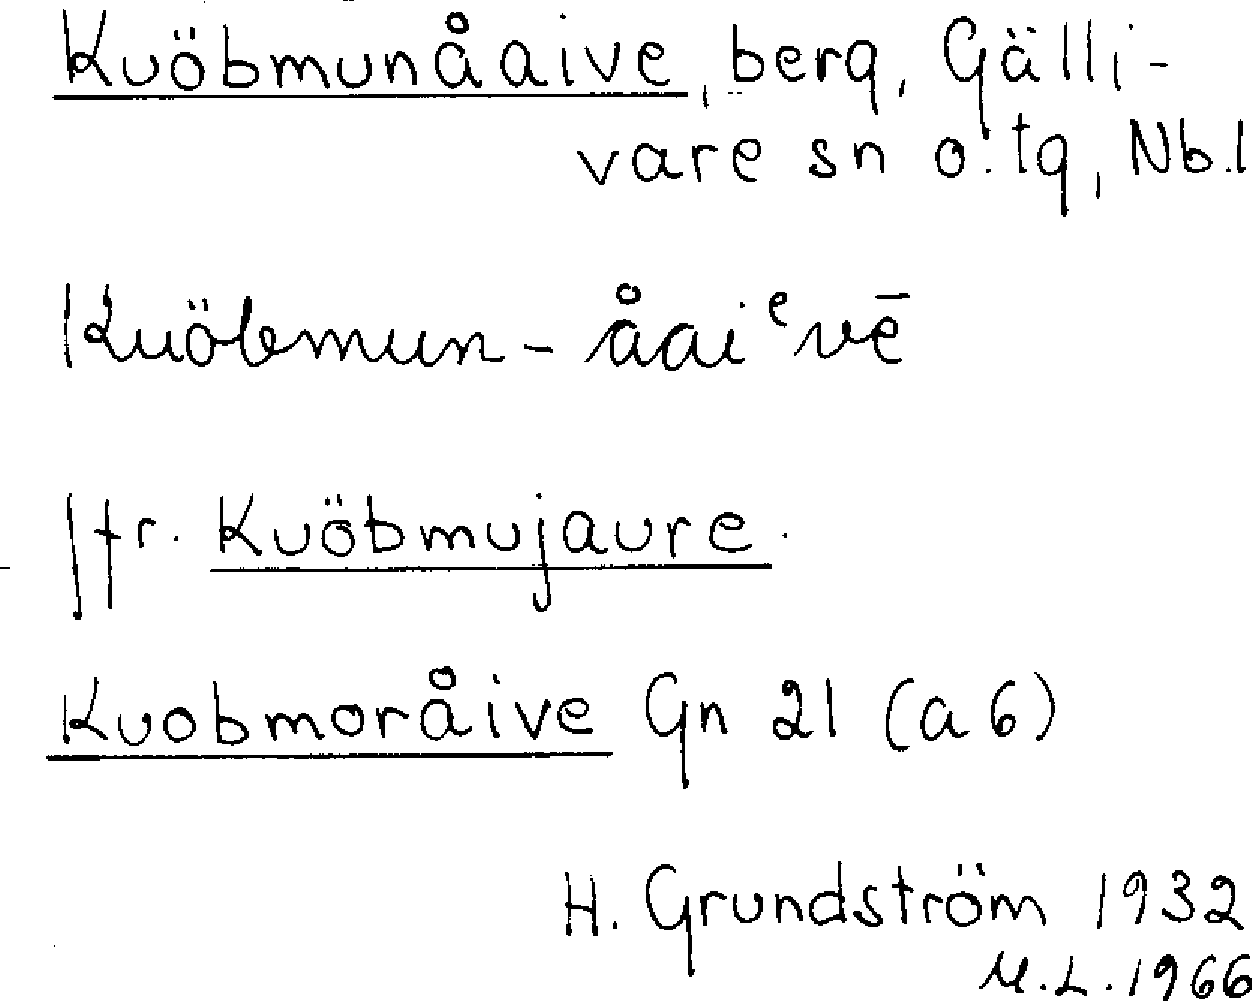 Kuöbmunåaive, berg, Gälli-
vare sn o. tg, Nb.l
Kuöbmun-åaiᵉvē
Jfr. Kuöbmujaure.
Kuobmoråive Gn 21 (a 6)
H. Grundström 1932
M.L. 1966